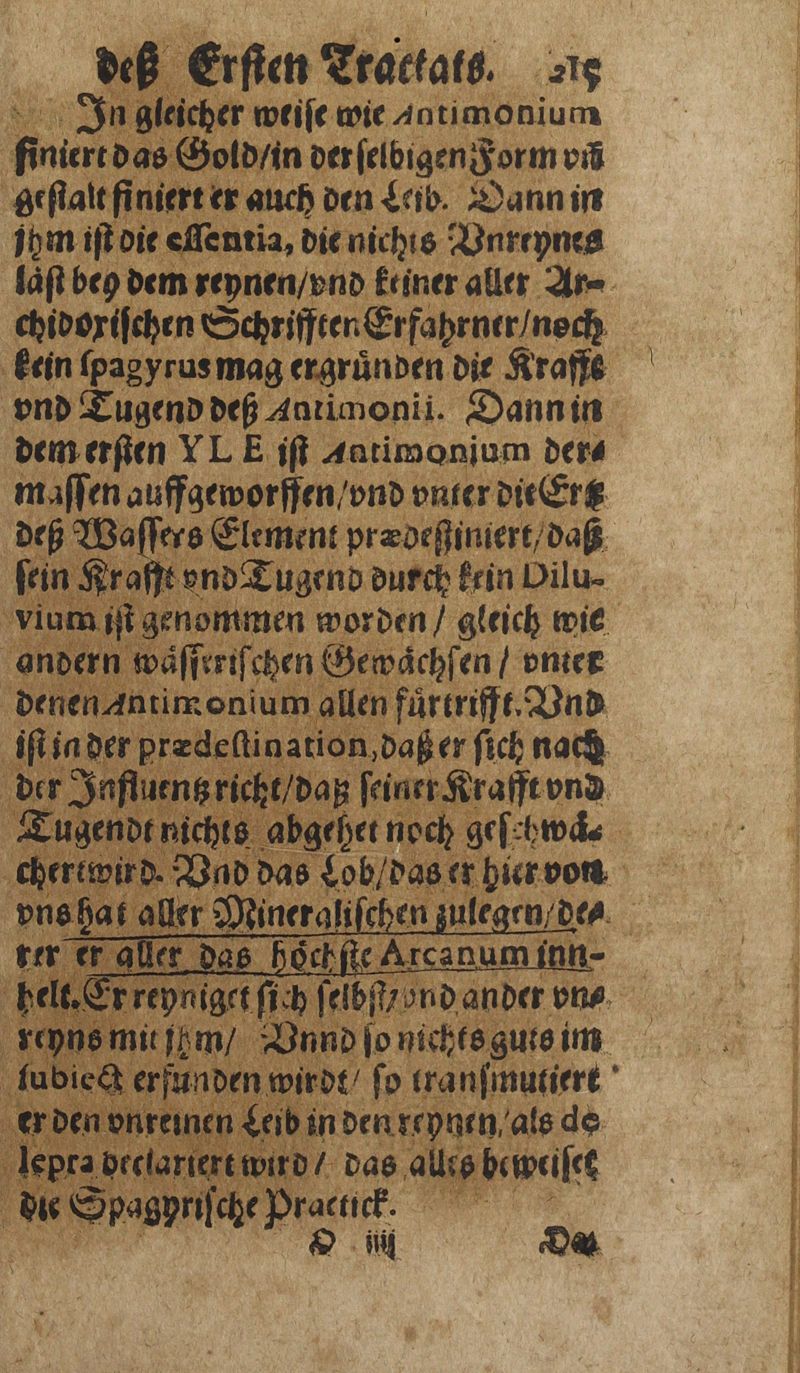 deß Ersten Tractats. 215
In gleicher weise wie Antimonium
finiert das Gold/in derselbigen Form vñ
gestalt finiert er auch den Leib. Dann in
jhm ist die essentia, die nichts Vnreynes
låst bey dem reynen/vnd keiner aller Ar-
chidoxischen Schrifften Erfahrner/noch
kein spagyrus mag ergrůnden die Krafft
vnd Tugend deß Antimonii. Dann in
dem ersten YLE ist Antimonium der-
massen auffgeworffen/vnd vnter die Ertz
deß Wassers Element prædestiniert/daß
sein Krafft vnd Tugend durch kein Dilu-
vium ist genommen worden / gleich wie
andern wåsserischen Gewåchsen / vnter
denen Antimonium allen fůrtrifft. Vnd
ist in der prædestination, daß er sich nach
der Influentz richt/daß seiner Krafft vnd
Tugendt nichts abgehet noch geschwå-
chert wird. Vnd das Lob/das er hier von
vns hat aller Mineralischen zulegen/de-
rer er aller das hőchste Arcanum inn-
helt. Er reyniget sich selbst/vnd ander vn-
reyns mit jhm/ Vnnd so nichts guts im
subiect erfunden wirdt/ so transmutiert
er den vnreinen Leib in den reynen/als de
lepra declariert wird/ das alles beweiset
die Spagyrische Practick.
O iiij Das